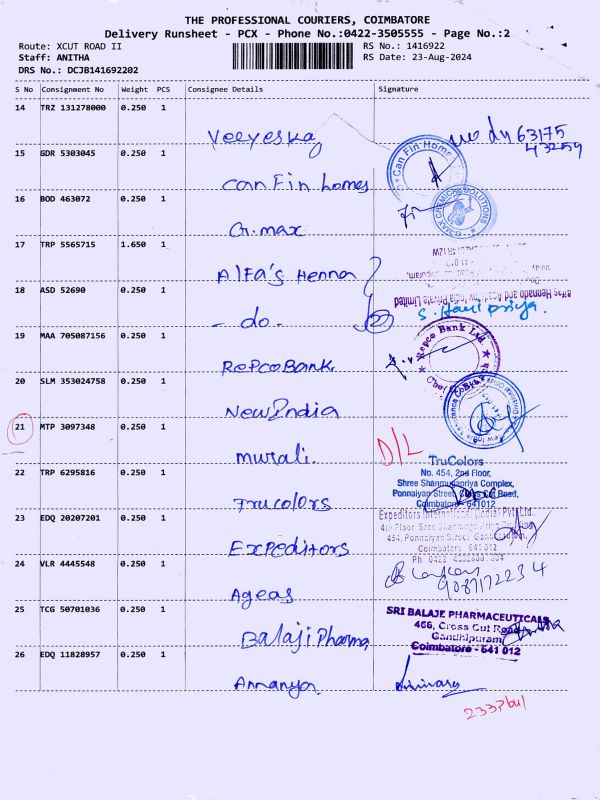 THE PROFESSIONAL COURIERS, COIMBATORE
Delivery Runsheet - PCX - Phone No.:0422-3505555 - Page No.:2
Route: XCUT ROAD II
RS No.: 1416922
Staff: ANITHA
RS Date: 23-Aug-2024
DRS No.: DCJB141692202
S No Consignment No Weight PCS Consignee Details Signature
14 TRZ 131278000 0.250 1
Veeyeskay
63175
43259
15 GDR 5303045 0.250 1
Can Fin homes
Can Fin Home
16 BOD 463072 0.250 1
G.max
G-MAX CHEMIC SOLUTIONS
17 TRP 5565715 1.650 1
Alfa's Henna
18 ASD 52690 0.250 1
- do -
Private Limited
S. Hari priya.
19 MAA 705087156 0.250 1
Repco Bank
Repco Bank Ltd
20 SLM 353024758 0.250 1
New India
21 MTP 3097348 0.250 1
murali.
D/L
22 TRP 6295816 0.250 1
Trucolors
TruColors
No. 454, 2nd Floor,
Shree Shanmugapriya Complex,
Ponnaiyan Street, Cross Cut Road,
Coimbatore - 641012
23 EDQ 20207201 0.250 1
Expeditors
Expeditors International (India) Pvt. Ltd.,
454, Ponnaiyan Street, Gandhipuram,
Coimbatore 641 012
24 VLR 4445548 0.250 1
Ageas
9087172234
25 TCG 50701036 0.250 1
Balaji Pharma
SRI BALAJE PHARMACEUTICALS
466, Cross Cut Road
Gandhipuram
Coimbatore - 641 012
26 EDQ 11828957 0.250 1
Ananya